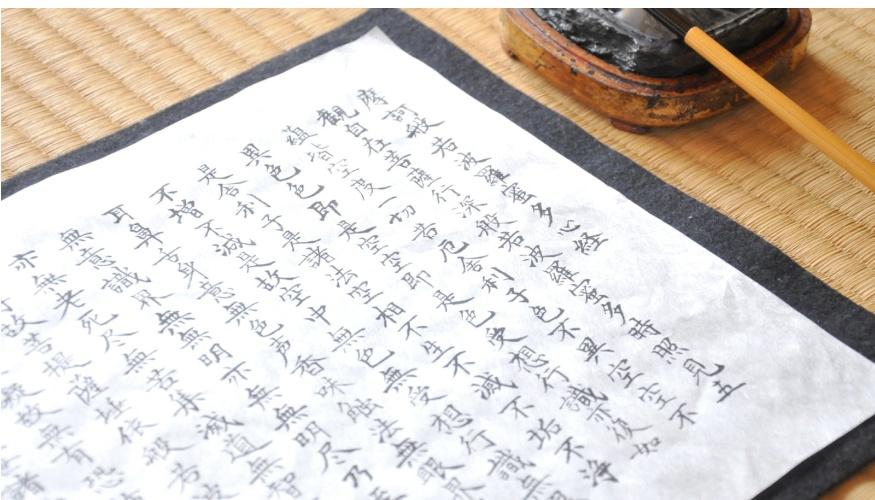 摩訶般若波羅蜜多心経
観自在菩薩行深般若波羅蜜多時照見五
蘊皆空度一切苦厄舎利子色不異空空不
異色色即是空空即是色受想行識亦復如
是舎利子是諸法空相不生不滅不垢不浄
不増不減是故空中無色無受想行識無
耳鼻舌身意無色声香味触法無眼界
無意識界無無明亦無無明尽乃至
亦無老死尽無苦集滅道無智
故菩提薩埵依般若波
礙故無有恐
諸